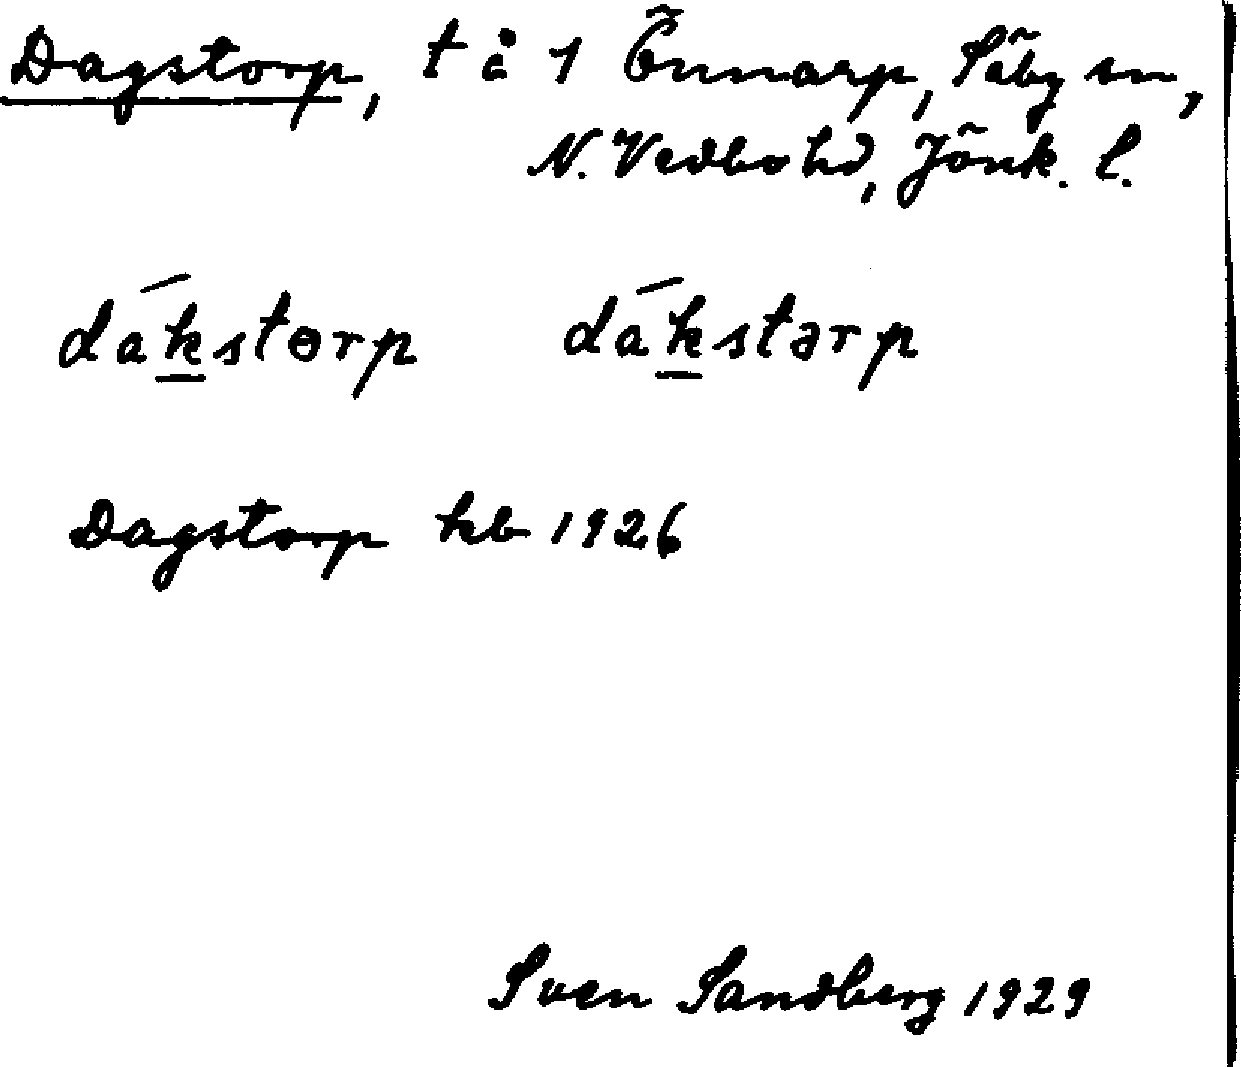 Dagstorp, t å 1 Önnarp, Säby sn,
N. Vedbo hd, Jönk. l.
dákstɵrp dákstərp
Dagstorp kb 1926
Sven Sandberg 1929